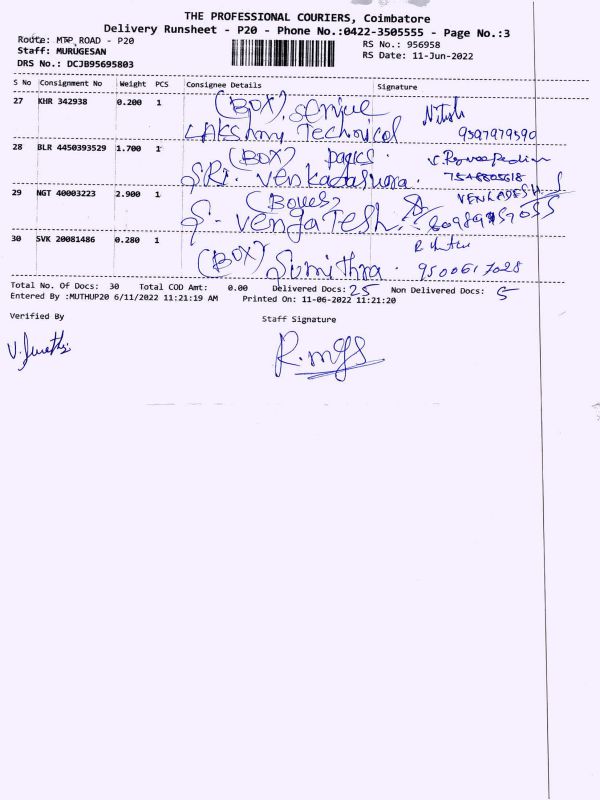 THE PROFESSIONAL COURIERS, Coimbatore
Delivery Runsheet - P20 - Phone No.:0422-3505555 - Page No.:3
Route: MTP ROAD - P20
Staff: MURUGESAN
DRS No.: DCJB95695803
RS No.: 956958
RS Date: 11-Jun-2022
S No Consignment No Weight PCS Consignee Details Signature
27 KHR 342938 0.200 1 (BOX)
LAKshmy Technical 9597979590
28 BLR 4450393529 1.700 1 (BOX)
SRI. venkadaswara.
29 NGT 40003223 2.900 1 (Boxes) VENKADESH. S
S. vengaTesh.
30 SVK 20081486 0.280 1
(BOX) Sumithra. 9500617028
Total No. Of Docs: 30 Total COD Amt: 0.00 Delivered Docs: 25 Non Delivered Docs: 5
Entered By :MUTHUP20 6/11/2022 11:21:19 AM Printed On: 11-06-2022 11:21:20
Verified By Staff Signature
R.mgs